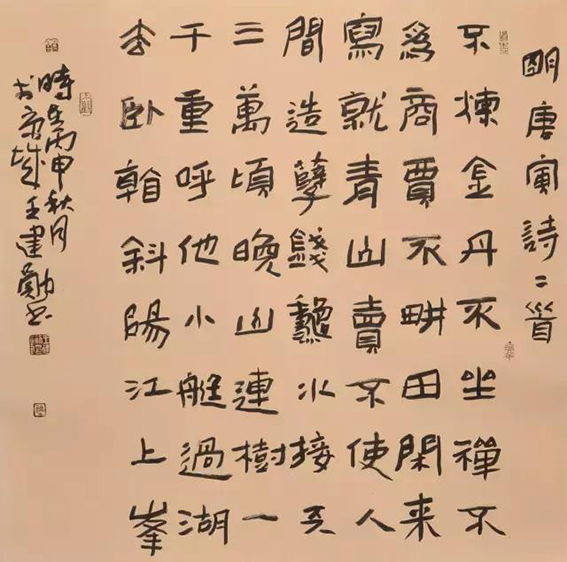 明唐寅詩二首
不煉金丹不坐禪不
為商賈不畊田閑来
寫就青山賣不使人
間造孽錢蠡水接天
三萬頃晚山連樹一
千重呼他小艇過湖
去卧看斜陽江上峯
時在丙申秋月
於京城王建勛書